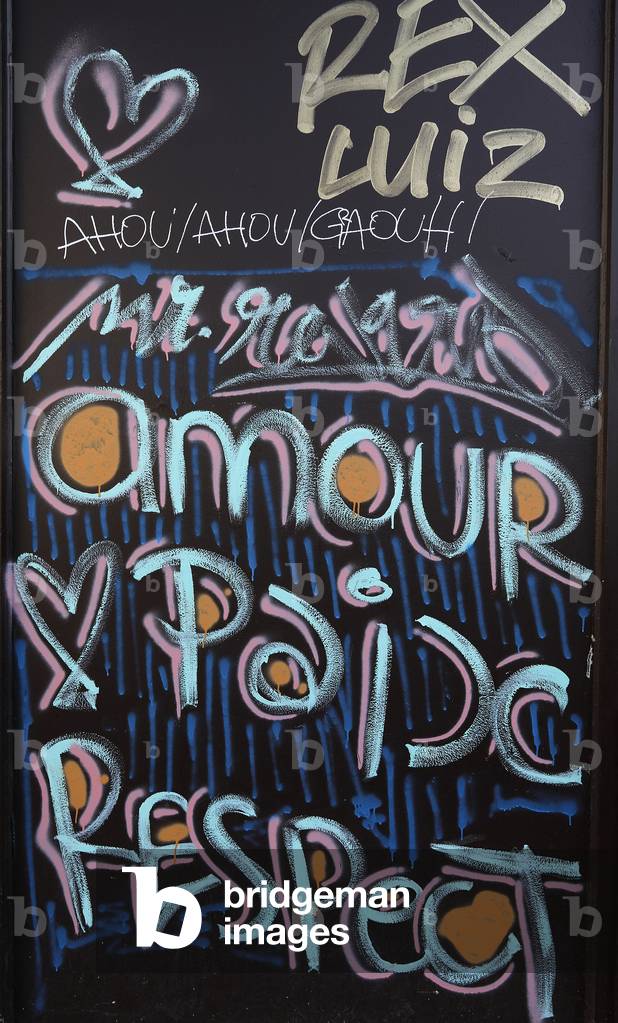 REX
LUIZ
AHOU/AHOU/GAOUH/
mr.
amour
Paix
RESPecT
bridgeman
images